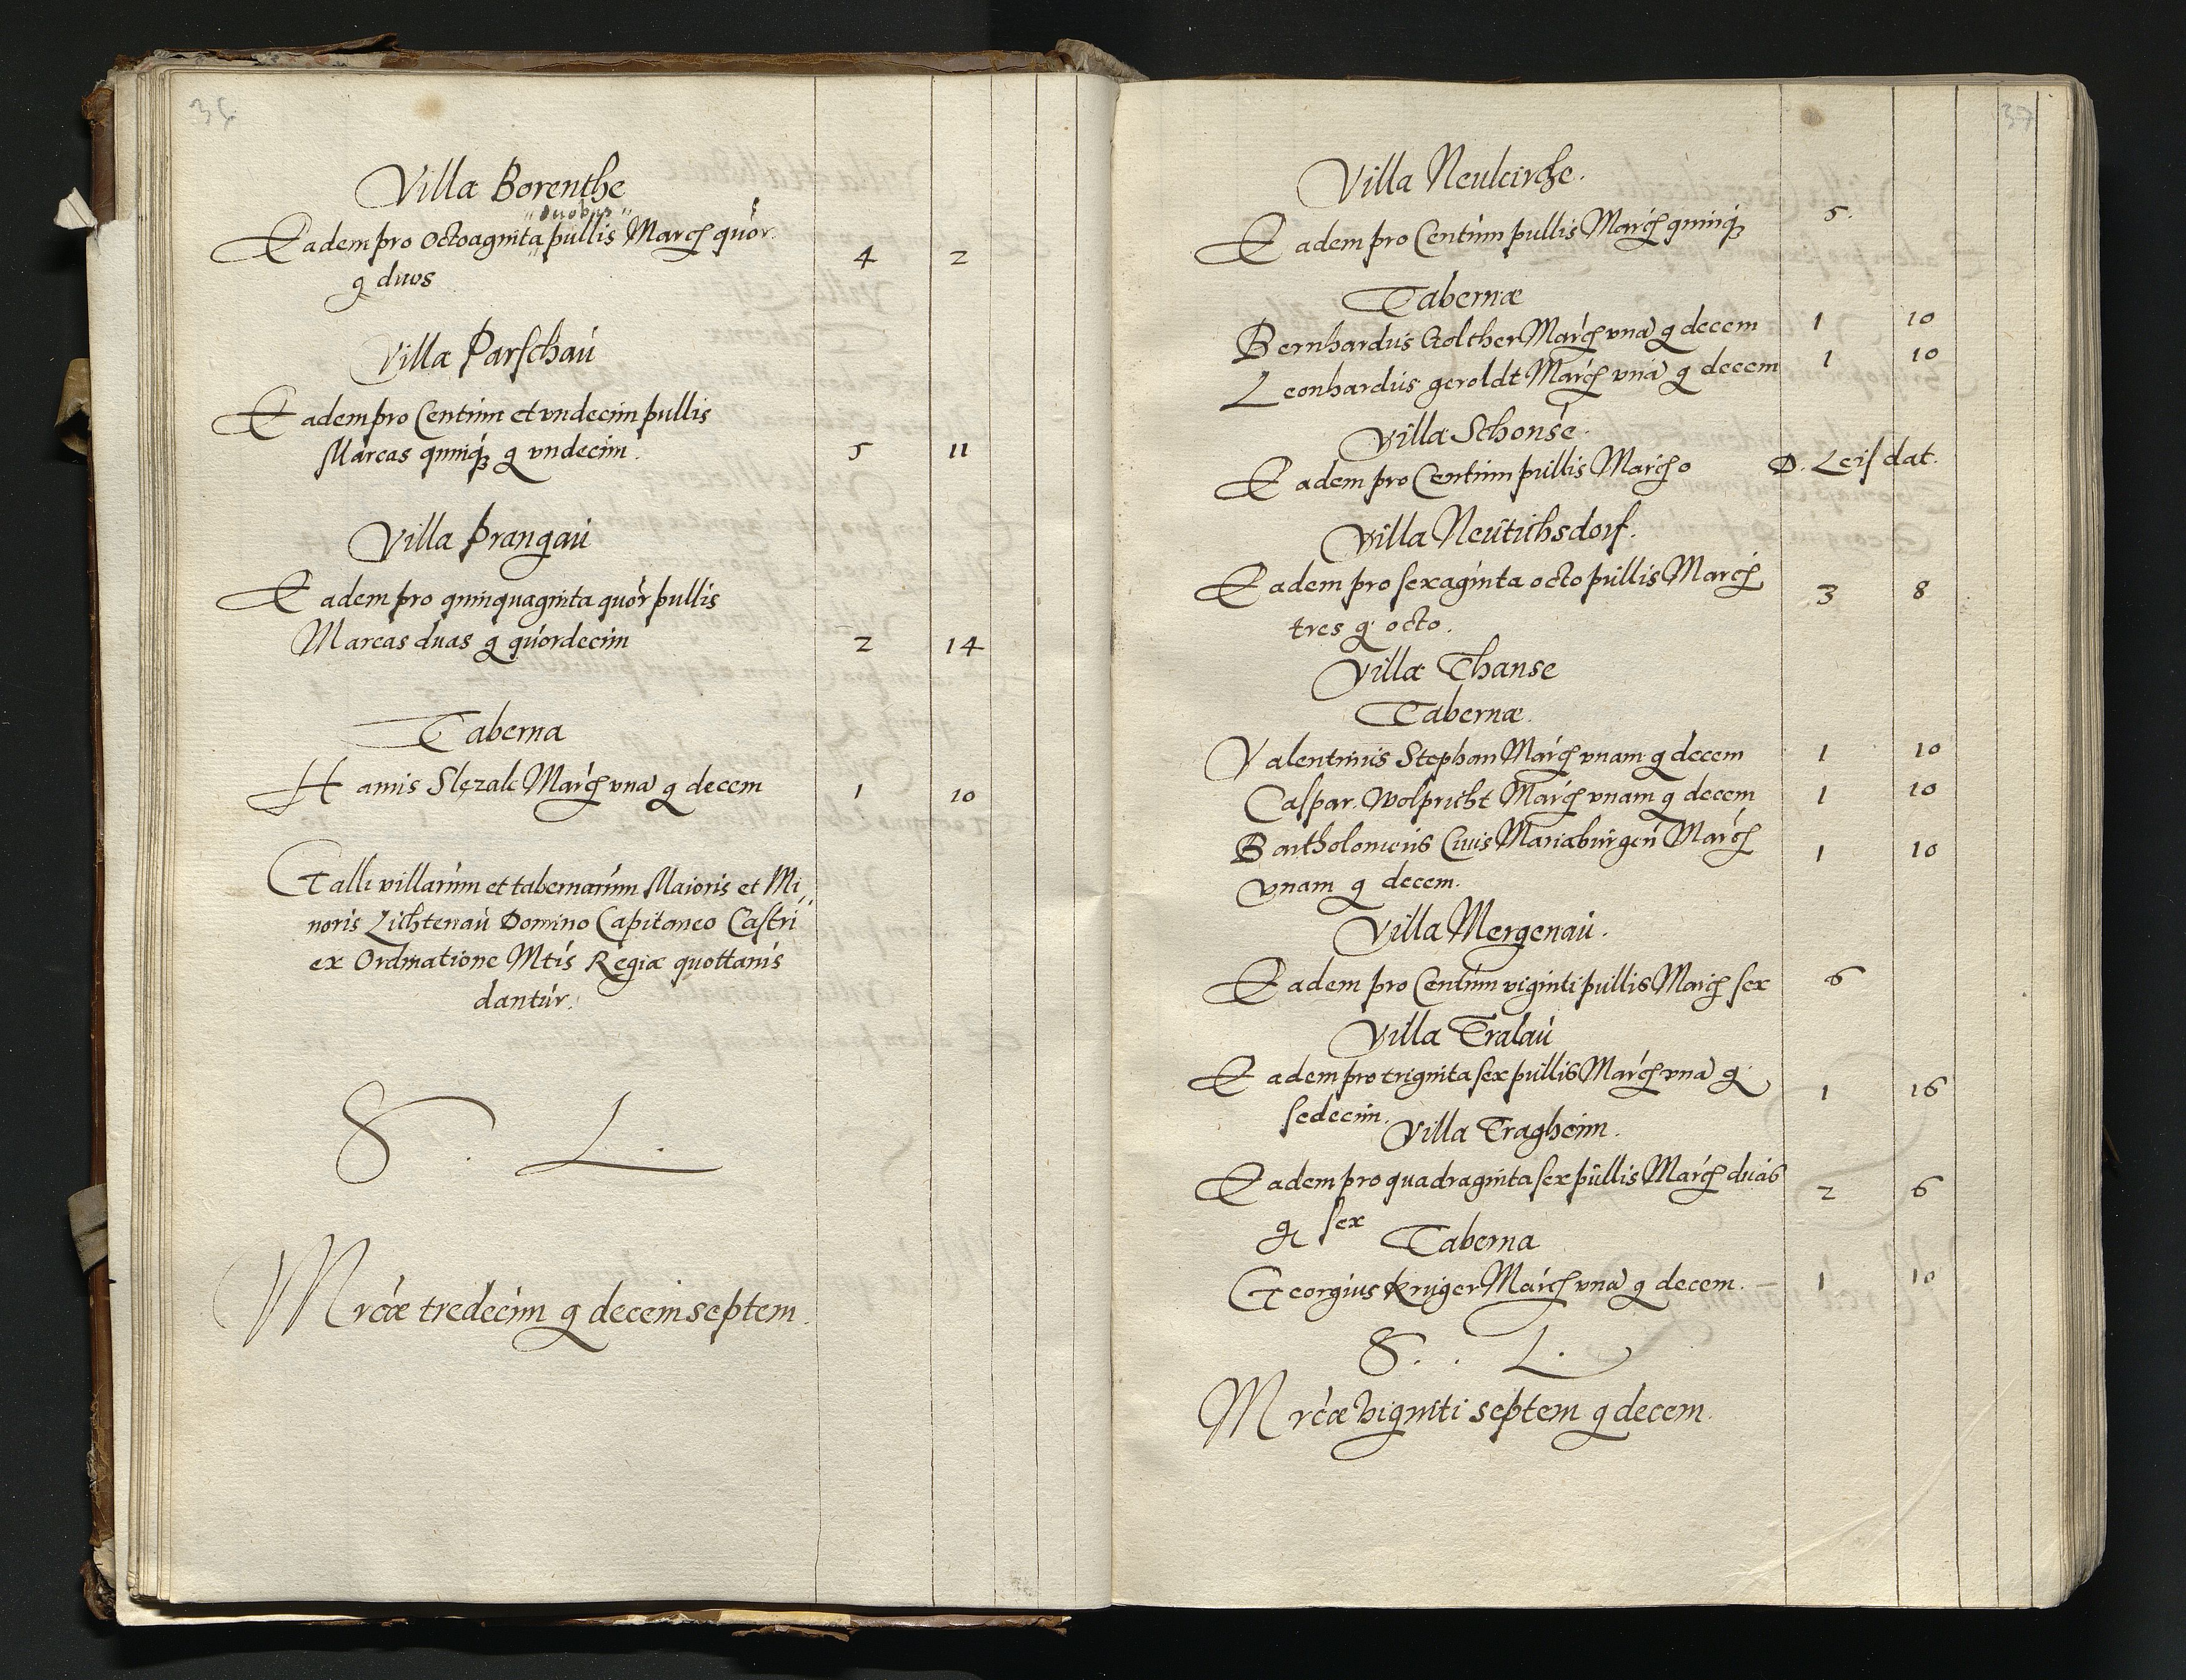 36
Villa Borenthe
"duobus"
Eadem pro Octoaginta pullis Marcq quor
g duos 4 2
Villa Parschau
Eadem pro Centum et vndecim pullis
Marcas quinq3 g vndecim. 5 11
Villa Prangau
Eadem pro quinquaginta quor pullis
Marcas duas g quordecim 2 14
Taberna
Hannis Slęzak Marcq vna g decem 1 10
Galli villarum et tabernarum Maioris et Mi,,
noris Lichtenau Domino Capitaneo Castri
ex Ordinatione Mtis Regiæ quottanis
dantur.
S. L.
Mrcæ tredecim g decemseptem.
37
Villa Neukirche.
Eadem pro Centum pullis Marcq quinq3 5.
Tabernæ
Bernhardus Golther Marcq vna g decem 1 10
Leonhardus geroldt Marcq vna g decem 1 10
Villa Schonse.
Eadem pro Centum pullis Marcq o D. Leis dat.
Villa Neutichsdorf.
Eadem pro sexaginta octo pullis Marcq 3 8
tres g octo.
Villa Thanse
Tabernæ.
Valentinus Stephan Marcq vnam g decem 1 10
Caspar. Wolpricht Marcq vnam g decem 1 10
Bartholomeus Ciuis Mariaburgen Marcq 1 10
vnam g decem.
Villa Mergenau.
Eadem pro Centum viginti pullis Marcq sex 6
Villa Tralau
Eadem pro triginta sex pullis Marcq vna g 1 16
sedecim.
Villa Tragheim.
Eadem pro quadraginta sex pullis Marcq duas 2 6
g sex
Taberna
Georgius Kruger Marcq vna g decem. 1 10
S. . L.
Mrcæ viginti septem g decem.